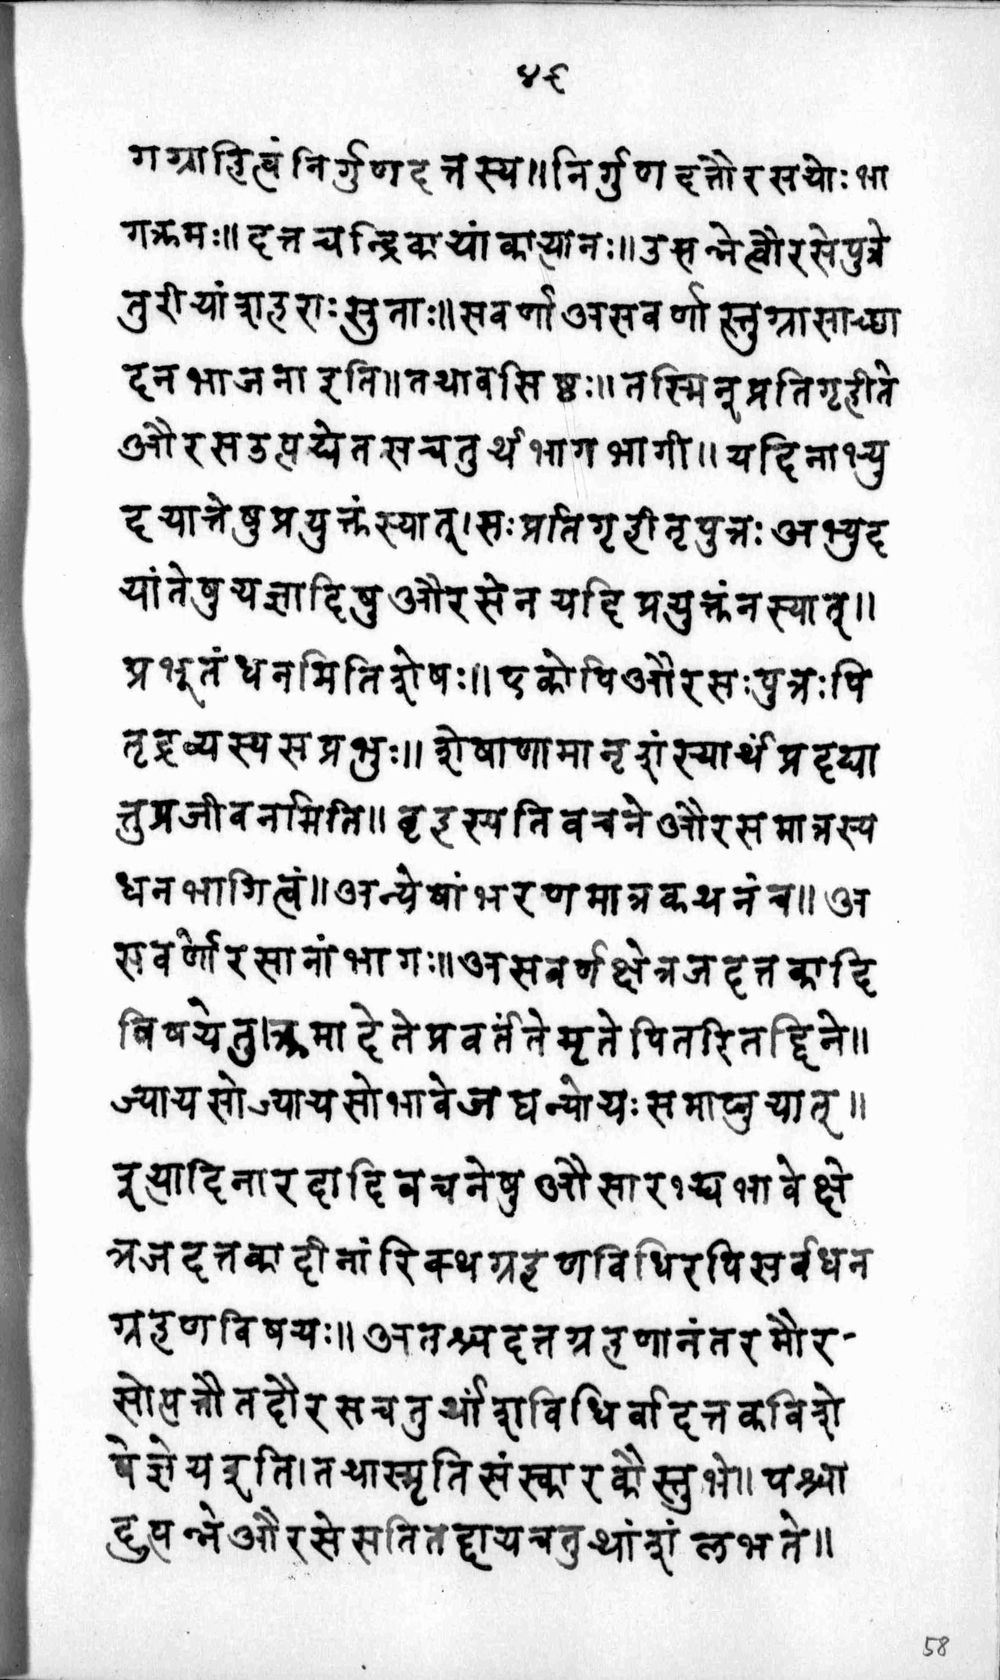 ४६
गग्राहित्वंनिर्गुणदत्तस्य॥निर्गुणदत्तौरसयोःभा
गक्रमः॥दत्तचन्द्रिकायांकात्यानः॥उत्सन्नेत्वौरसेपुत्रे
तुरीयांशहराःसुताः॥सवर्णाअसवर्णास्तुग्रासाच्छा
दनभाजनाइति॥तथावसिष्ठः॥तस्मिन्प्रतिगृहीते
औरसउत्पद्येतसचतुर्थभागभागी॥यदिनाभ्यु
दयान्तेषुप्रयुक्तंस्यात्।सःप्रतिगृहीतृपुत्रःअभ्युद
यांतेषुयज्ञादिषुऔरसेनयदिप्रयुक्तंनस्यात्॥
प्रभूतंधनमितिशेषः॥एकोपिऔरसःपुत्रःपि
तृद्रव्यस्यसप्रभुः॥शेषाणामानृशंस्यार्थंप्रदद्या
त्तुप्रजीवनमिति॥बृहस्पतिवचनेऔरसमात्रस्य
धनभागित्वं॥अन्येषांभरणमात्रकथनंच॥अ
सवर्णौरसानांभागः॥असवर्णक्षेत्रजदत्तकादि
विषयेतु।क्रमादेतेप्रवर्तंतेमृतेपितरितद्दिने॥
ज्यायसोज्यायसोभावेजघन्योयःसमाप्नुयात्॥
इत्यादिनारदादिवचनेषुऔसारभ्यद्यभावेक्षे
त्रजदत्तकादीनांरिक्थग्रहणविधिरपिसर्वधन
ग्रहणविषयः॥अतश्चदत्तग्रहणानंतरमौर-
सोत्पत्तौतदौरसचतुर्थांशविधिर्वादत्तकविशे
षेज्ञेयइति।तथास्मृतिसंस्कारकौस्तुभे॥पश्चा
दुत्पन्नेऔरसेसतितद्दायचतुर्थांशंलभते॥
58